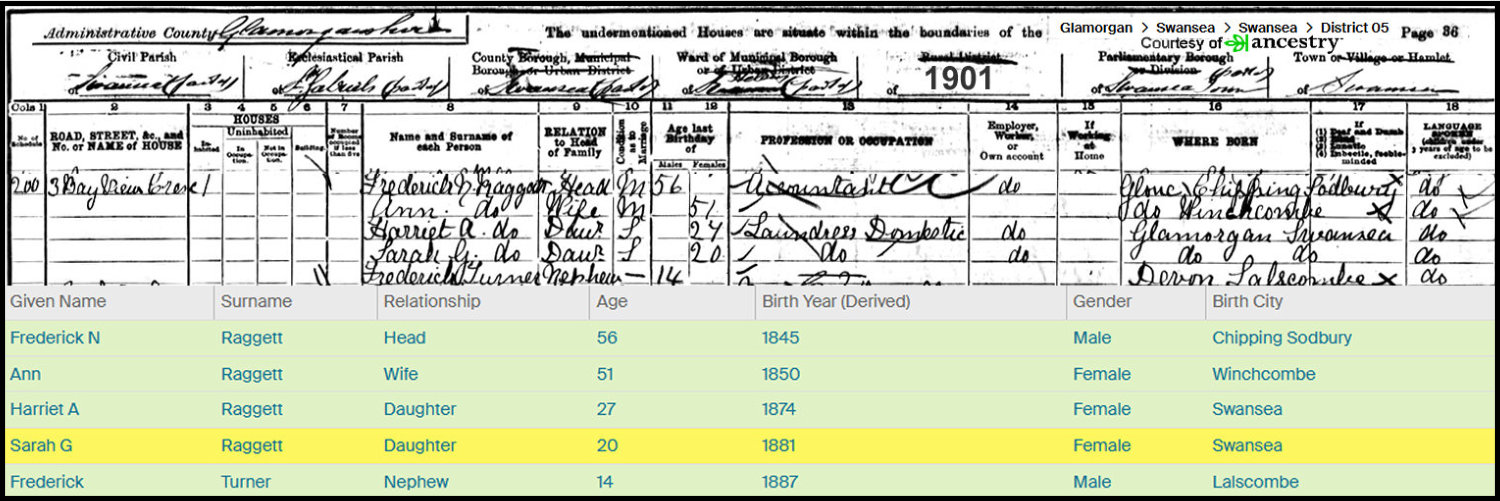 Administrative County Glamorganshire The undermentioned Houses are situate within the boundaries of the Glamorgan > Swansea > Swansea > District 05 Page 36
Courtesy of ancestry
Civil Parish Ecclesiastical Parish County Borough, Municipal Ward of Municipal Borough Rural District Parliamentary Borough Town or Village or Hamlet
Borough or Urban District or of Urban District 1901 or Division
of Swansea (part of) of St Gabriels (part of) of Swansea (part of) of (part of) of of Swansea Town (part of) of Swansea
Cols 1 2 3 4 5 6 7 8 9 10 11 12 13 14 15 16 17 18
No. of Schedule ROAD, STREET, &c., and No. or NAME of HOUSE HOUSES Inhabited Uninhabited In Occupation. Not in Occupation. Building. Number of Rooms occupied if less than five Name and Surname of each Person RELATION to Head of Family Condition as to Marriage Age last Birthday of Males Females PROFESSION OR OCCUPATION Employer, Worker, or Own account If Working at Home WHERE BORN If (1) Deaf and Dumb (2) Blind (3) Lunatic (4) Imbecile, feeble-minded LANGUAGE SPOKEN (children under 3 years of age to be excluded)
200 3 Bay View Cres 1 Frederick N Raggett Head M 56 Accountant do Glouc Chipping Sodbury do
Ann do Wife M 51 do Winchcombe do
Harriet A. do Daur S 27 Laundress Domestic do Glamorgan Swansea do
Sarah G. do Daur S 20 do do do do do
Frederick Turner Nephew — 14 Devon Lalscombe do
Given Name Surname Relationship Age Birth Year (Derived) Gender Birth City
Frederick N Raggett Head 56 1845 Male Chipping Sodbury
Ann Raggett Wife 51 1850 Female Winchcombe
Harriet A Raggett Daughter 27 1874 Female Swansea
Sarah G Raggett Daughter 20 1881 Female Swansea
Frederick Turner Nephew 14 1887 Male Lalscombe